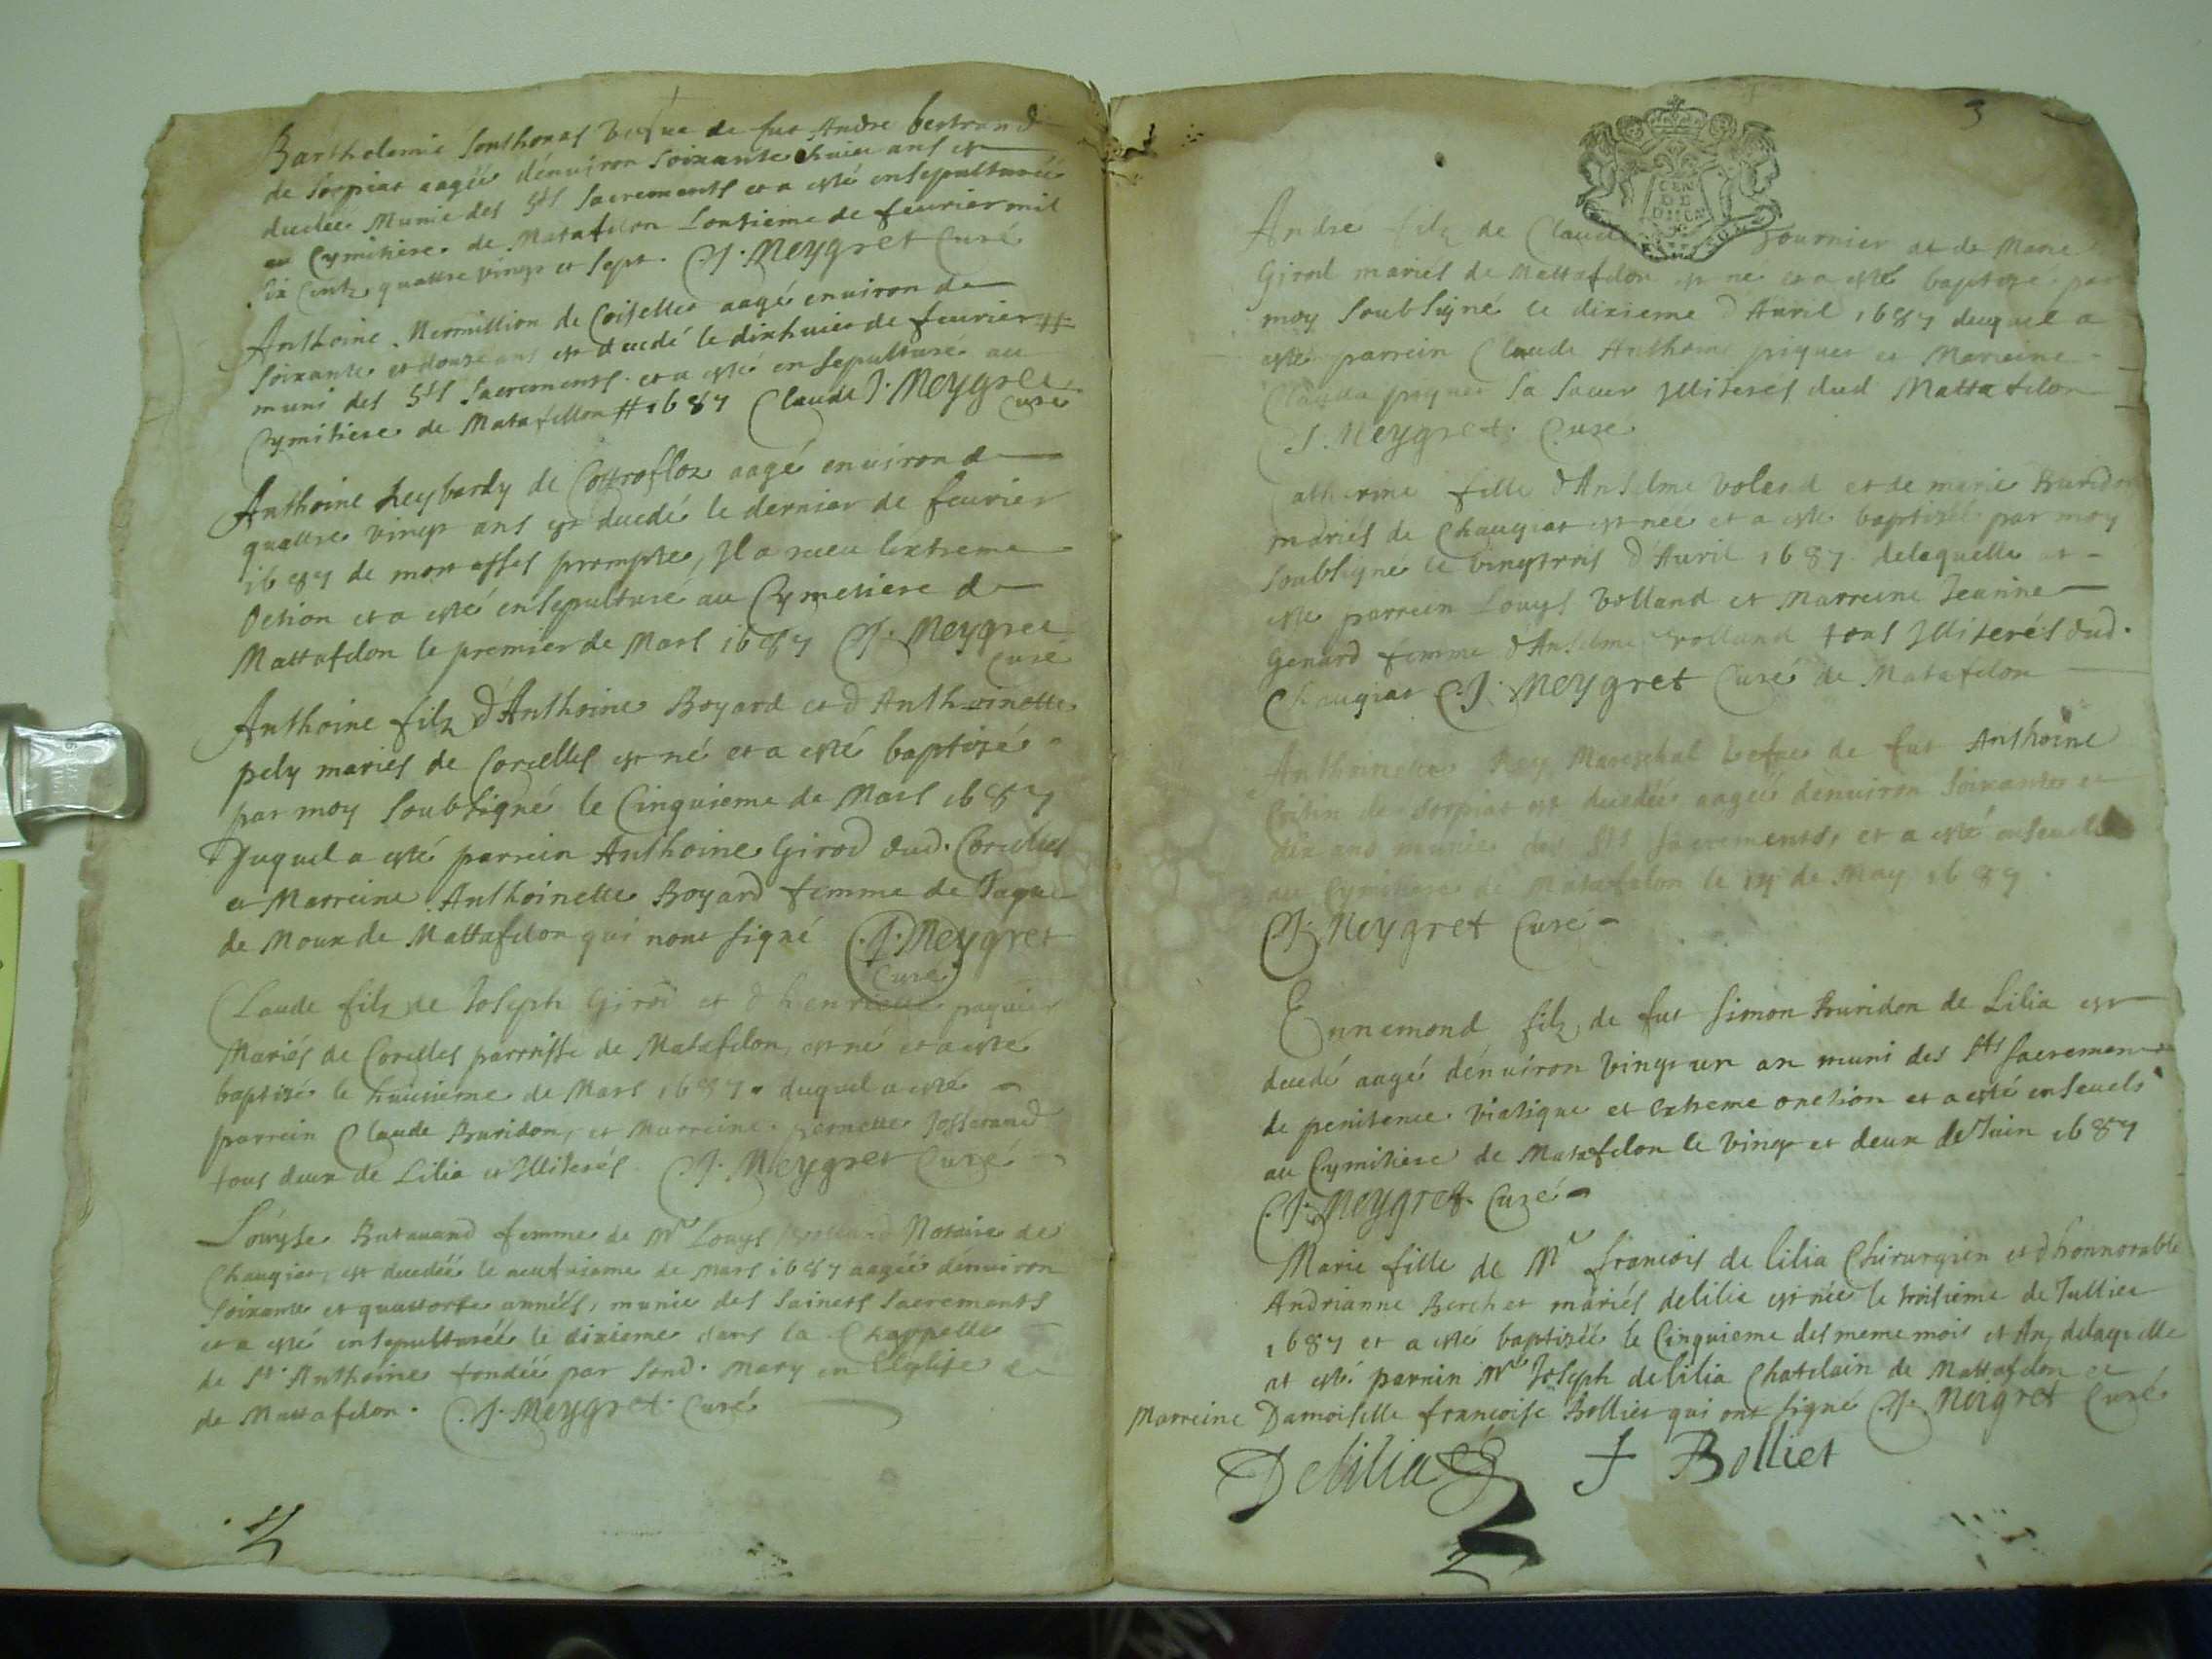 Bartholomie Sonthonas vefue de fut Andre bertrand
de Sorpiat aagée dénuiron Soixante huict ans est
decdee Munie des Sts Sacrements et a esté ensepulturéé
au Cymitiere de Matafelon Lontieme de feurier mil
Six Centz quattre vingt et Sept. J. Meygret Curé
Anthoine Mermillion de Coiselles aagé enuiron de
Soixante et douze ans est decedé le dixhuict de feurier #
muni des Sts Sacrements et a esté ensepulturé au
Cymitiere de Matafellon # 1687 Claude J. Meygret
Curé
Anthoine Reybardy de aagé enuiron de
quattre vingt ans est decedé le dernier de feurier
1687 de mort asses prompte, Il a receu lextreme
Oction et a esté ensepulturé au Cymetiere de
Mattafelon le premier de Mars 1687 J. Meygret
Curé
Anthoine filz d'Anthoine Boyard et d'Anthoinette
pely mariés de Corcelles est né et a esté baptizé
par moy Soubsigné le Cinquieme de Mars 1687
Duquel a esté parrein Anthoine Girod dud. Corcelles
et Marreine Anthoinette Boyard femme de Jaque
de Moux de Mattafelon qui nont signé J. Meygret
Curé
Claude filz de Joseph Giroi et d'henriette paquier
Mariés de Corcelles parroisse de Matafelon, est né et a este
baptizé le huictieme de Mars 1687. duquel a esté
parrein Claude Buridon, et Marreine pernette Josserand
tous deux de Lilia et Illiterés J. Meygret Curé
Louyse Butauand femme de Mr Louys Volland Notaire de
Chaugiat, est decedéé le neufuieme de Mars 1687 aagéé dénuiron
Soixante et quattorze annéés, munie des Saincts Sacrements
et a esté ensepulturéé le dixieme dans la Chappelle
de St Anthoine fondéé par Sond. Mary en L'Eglise de
de Mattafelon. J. Meygret Curé
3
Andre filz de Claude Fournier et de Marie
Girod mariés de Mattafelon est né et a esté baptizé par
moy Soubsigné le dixieme d'Auril 1687 duquel a
esté parrein Claude Anthoine piquet et Marreine
Clauda piquet Sa Soeur Illiterés dud Mattafelon
J. Meygret Curé
Catherine fille d'Anselme Voland et de marie Buridon
mariés de Chaugiat est née et a esté baptizéé par moy
Soubsigné le vingtrois d'Auril 1687 delaquelle at
esté parrein Louys Volland et Marreine Jeanne
Genard femme d'Anselme Volland tous Illiterés dud.
Chaugiat J. Meygret Curé de Matafelon
Anthoinette Rey Mareschal vefue de fut Anthoine
de Sorpiat est decedéé aagéé dénuiron Soixante et
dix ans munie des Sts Sacrements, et a esté enseueli
au Cymitiere de Matafelon le 14 de May 1687.
J. Meygret Curé
Ennemond filz de fut Simon Buridon de Lilia est
decedé aagé dénuiron vingt un an muni des Sts Sacrements
de penitence viatique et extreme onction et a esté enseueli
au Cymitiere de Matafelon le vingt et deux de Juin 1687
J. Meygret Curé
Marie fille de Mr francois de lilia Chirurgien et d'honnorable
Andrianne Berchet mariés delilia est née le troisieme de Jullier
1687 et a esté baptizéé le Cinquieme des meme mois et An, delaquelle
at esté parrin Mre Joseph delilia Chatelain de Mattafelon et
Marreine Damoiselle francoise Bolliet qui ont Signé J. Meygret Curé
Delilia F Bolliet